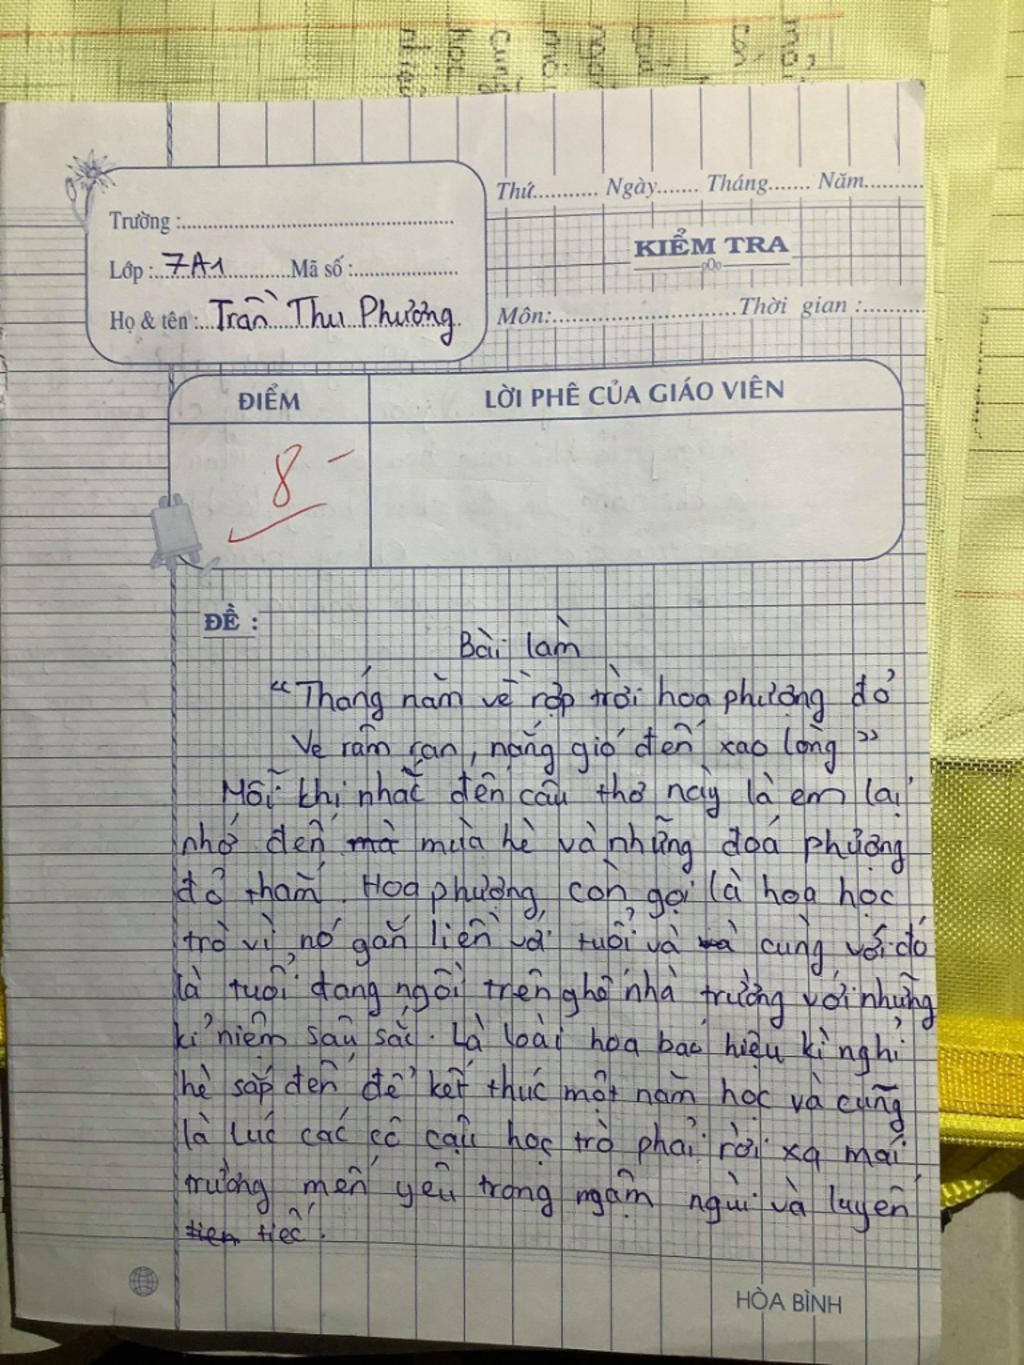 Thứ........... Ngày....... Tháng....... Năm..........
Trường :..................................................
KIỂM TRA
Lớp :..7A1............Mã số :...................
Họ & tên :...Trần Thu Phưởng
Môn:...........................Thời gian :.........
ĐIỂM
LỜI PHÊ CỦA GIÁO VIÊN
8 -
ĐỀ :
Bài làm
“Tháng năm về rợp trời hoa phượng đỏ
Ve râm ran, nắng gió đến xao lòng”
Mỗi khi nhắc đến câu thơ này là em lại
nhớ đến mà mùa hè và những đoá phượng
đỏ thắm. Hoa phượng còn gọi là hoa học
trò vì nó gắn liền với tuổi và và cùng với đó
là tuổi đang ngồi trên ghế nhà trường với những
kỉ niệm sâu sắc. Là loài hoa báo hiệu kì nghỉ
hè sắp đến để kết thúc một năm học và cũng
là lúc các cô cậu học trò phải rời xa mái
trường mến yêu trong ngậm ngùi và luyến
tiên tiếc.
HÒA BÌNH